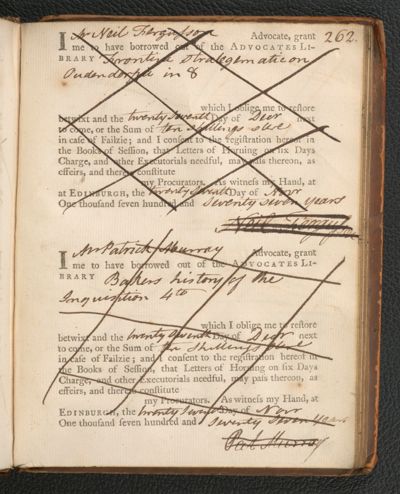 262.
I Mr Neil Fergusson Advocate, grant
me to have borrowed out of the ADVOCATES LI-
BRARY Frontini Strategematicon
Oudendorpii in 8
which I oblige me to restore
betwixt and the twenty seventh Day of Decr next
to come, or the Sum of ten shillings sterl
in case of Failzie; and I consent to the registration hereof in
the Books of Session, that Letters of Horning on six Days
Charge, and other Executorials needful, may pass thereon, as
effeirs, and thereto constitute
my Procurators. As witness my Hand, at
at EDINBURGH, the twenty seventh Day of Novr
One thousand seven hundred and Seventy seven years
Neil Ferguson
I Mr Patrick Murray Advocate, grant
me to have borrowed out of the ADVOCATES LI-
BRARY Bakers history of the
Inquisition 4to
which I oblige me to restore
betwixt and the twenty seventh Day of Decr next
to come, or the Sum of Shillings
in case of Failzie; and I consent to the registration hereof in
the Books of Session, that Letters of Horning on six Days
Charge, and other Executorials needful, may pass thereon, as
effeirs, and thereto constitute
my Procurators. As witness my Hand, at
EDINBURGH, the twenty seventh Day of Novr
One thousand seven hundred and Seventy Seven years
Pat Murray